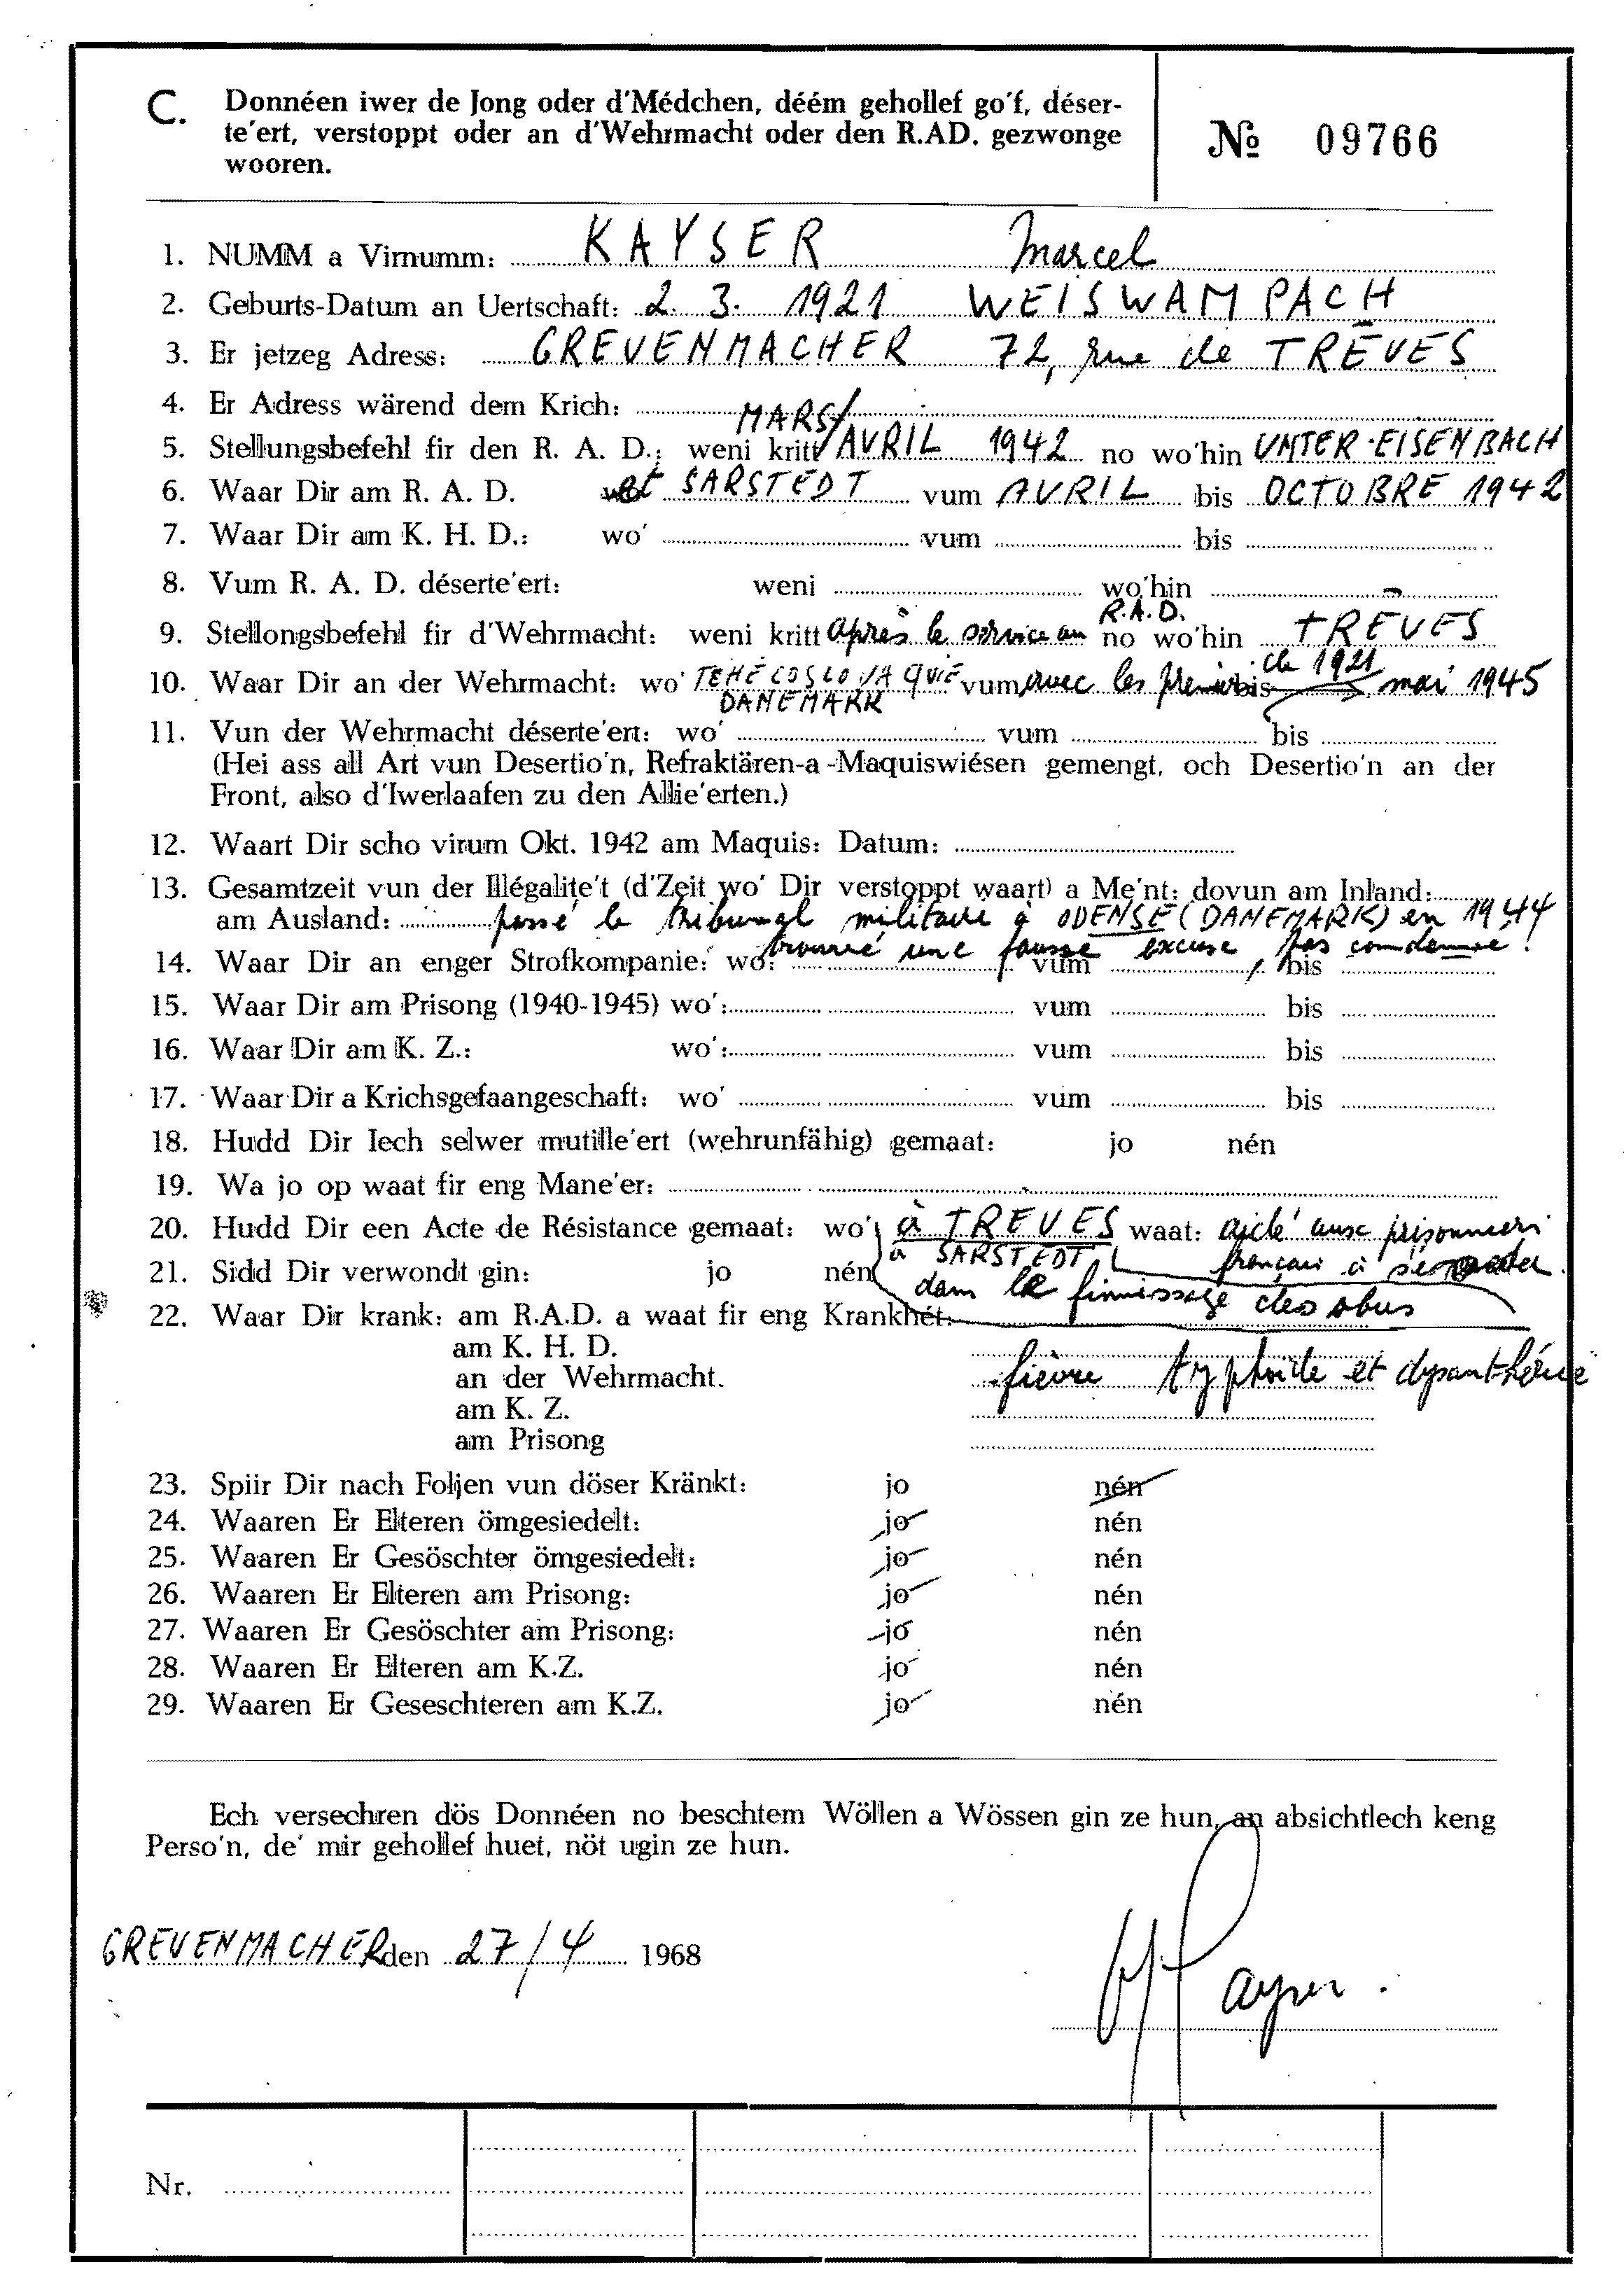 C. Donnéen iwer de Jong oder d'Médchen, déém gehollef go'f, déser-
te'ert, verstoppt oder an d'Wehrmacht oder den R.AD. gezwonge
wooren.
№ 09766
1. NUMM a Virnumm: KAYSER Marcel
2. Geburts-Datum an Uertschaft: 2. 3. 1921 WEISWAMPACH
3. Er jetzeg Adress: GREVENMACHER 72, rue de TRÈVES
4. Er Adress wärend dem Krich:
5. Stellungsbefehl fir den R. A. D.: weni kritt MARS/AVRIL 1942 no wo'hin UNTER-EISENBACH
6. Waar Dir am R. A. D. et SARSTEDT vum AVRIL bis OCTOBRE 1942
7. Waar Dir am K. H. D.: wo' vum bis
8. Vum R. A. D. déserte'ert: weni wo'hin
9. Stellongsbefehl fir d'Wehrmacht: weni kritt après le service au R.A.D. no wo'hin TRÈVES
10. Waar Dir an der Wehrmacht: wo' TEHÉCOSLOVAQUIE DANEMARK vum avec les premiers de 1921 bis mai 1945
11. Vun der Wehrmacht déserte'ert: wo' vum bis
(Hei ass all Art vun Desertio'n, Refraktären-a-Maquiswiésen gemengt, och Desertio'n an der
Front, also d'Iwerlaafen zu den Allie'erten.)
12. Waart Dir scho virum Okt. 1942 am Maquis: Datum:
13. Gesamtzeit vun der Illégalite't (d'Zeit wo' Dir verstoppt waart) a Me'nt: dovun am Inland:
am Ausland: passé le tribunal militaire à ODENSE (DANEMARK) en 1944
trouvé une fausse excuse, pas condamné!
14. Waar Dir an enger Strofkompanie: wo: vum bis
15. Waar Dir am Prisong (1940-1945) wo': vum bis
16. Waar Dir am K. Z.: wo': vum bis
17. Waar Dir a Krichsgefaangeschaft: wo' vum bis
18. Hudd Dir Iech selwer mutille'ert (wehrunfähig) gemaat: jo nén
19. Wa jo op waat fir eng Mane'er:
20. Hudd Dir een Acte de Résistance gemaat: wo' à TREVES waat: aidé aux prisonniers
à SARSTEDT français à s'évader
21. Sidd Dir verwondt gin: jo nén
dans le finnissage des obus
22. Waar Dir krank: am R.A.D. a waat fir eng Krankhét:
am K. H. D.
an der Wehrmacht. fièvre typhoïde et dysanthérie
am K. Z.
am Prisong
23. Spiir Dir nach Foljen vun döser Kränkt: jo nén
24. Waaren Er Elteren ömgesiedelt: jo nén
25. Waaren Er Gesöschter ömgesiedelt: jo nén
26. Waaren Er Elteren am Prisong: jo nén
27. Waaren Er Gesöschter am Prisong: jo nén
28. Waaren Er Elteren am K.Z. jo nén
29. Waaren Er Geseschteren am K.Z. jo nén
Ech versechren dös Donnéen no beschtem Wöllen a Wössen gin ze hun, an absichtlech keng
Perso'n, de' mir gehollef huet, nöt ugin ze hun.
GREVENMACHER den 27/4 1968
M Kayser.
Nr.